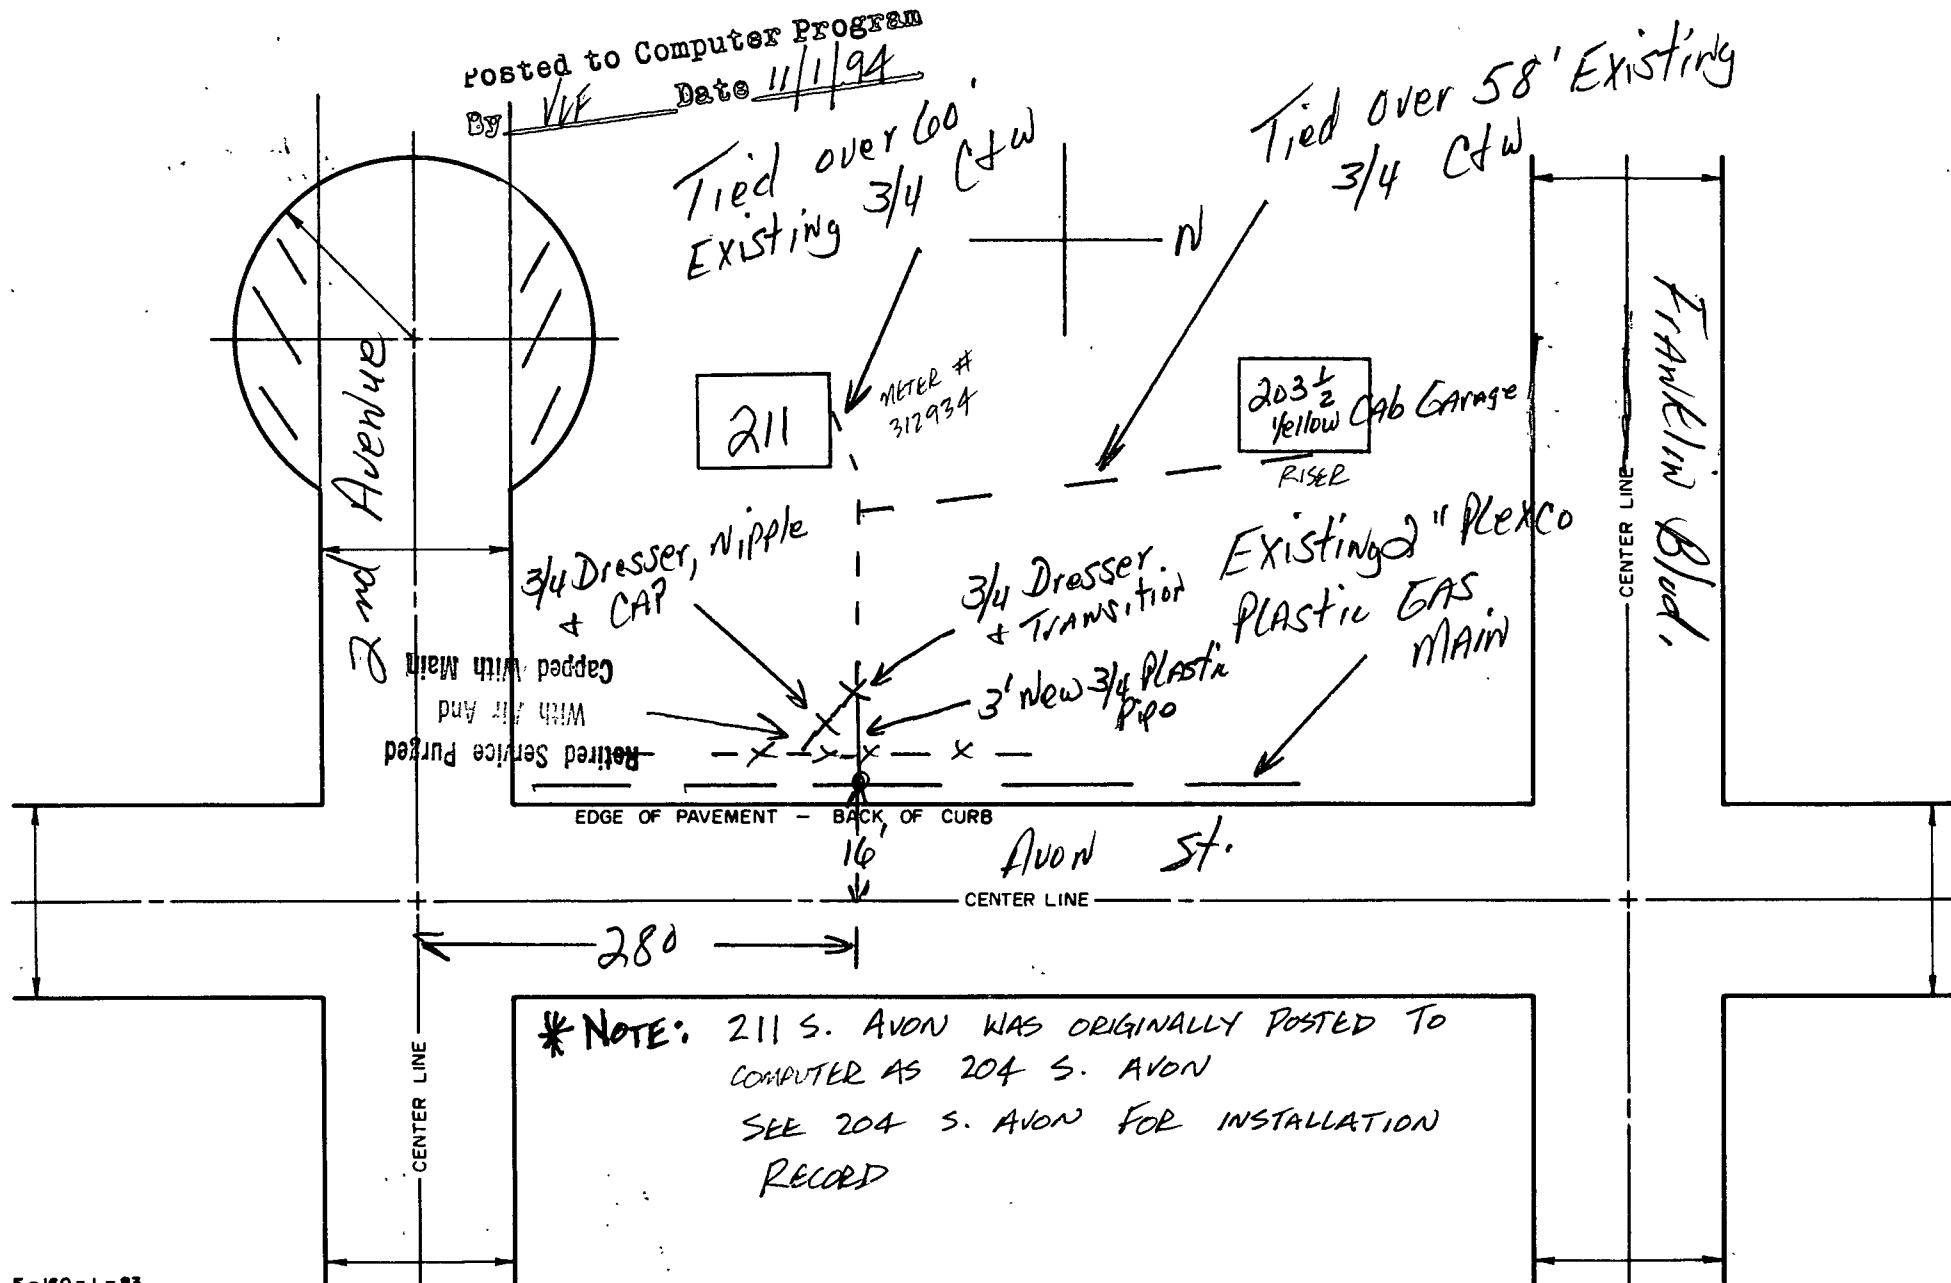 Posted to Computer Program
By VVF Date 11/1/94
Tied over 60'
Existing 3/4 C&W
Tied over 58' Existing
3/4 C&W
N
2nd Avenue
Franklin Blvd.
211
METER #
312934
203 1/2
Yellow Cab Garage
RISER
3/4 Dresser, Nipple
& CAP
3/4 Dresser
& Transition
Existing 2" Plexco
Plastic GAS
MAIN
3' New 3/4 Plastic
Pipe
Retired Service Purged
With Air And
Capped With Main
CENTER LINE
EDGE OF PAVEMENT – BACK OF CURB
16'
Avon St.
CENTER LINE
280
CENTER LINE
* NOTE: 211 S. AVON WAS ORIGINALLY POSTED TO
COMPUTER AS 204 S. AVON
SEE 204 S. AVON FOR INSTALLATION
RECORD